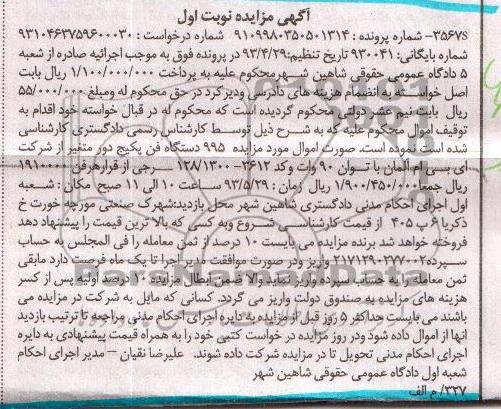 آگهی مزایده نوبت اول
۳۵۶۷s- شماره پرونده : ۹۱۰۹۹۸۰۳۵۰۵۰۱۳۱۴ شماره درخواست : ۹۳۱۰۴۶۳۷۵۹۶۰۰۰۳۰
شماره بایگانی: ۹۳۰۰۴۱ تاریخ تنظیم:۹۳/۴/۲۹ در پرونده فوق به موجب اجرائیه صادره از شعبه
۵ دادگاه عمومی حقوقی شاهین شهرمحکوم علیه به پرداخت ۱/۱۰۰/۰۰۰/۰۰۰ ریال بابت
اصل خواسته به انضمام هزینه های دادرسی ودیرکرد در حق محکوم له ومبلغ ۵۵/۰۰۰/۰۰۰
ریال بابت نیم عشر دولتی محکوم گردیده است که محکوم له در قبال خواسته خود اقدام به
توقیف اموال محکوم علیه که به شرح ذیل توسط کارشناس رسمی دادگستری کارشناسی
شده است نموده است. صورت اموال مورد مزایده ۹۹۵ دستگاه فن پکیج دور متغیر از شرکت
ای بی ام المان با توان ۹۰ وات وکد ۳۶۱۲- ۱۲۸/۱۳۰۰ سرجی از قرارهرفن ۱۹۱۰۰۰۰
ریال جمعا ۱/۹۰۰/۴۵۰/۰۰۰ ریال زمان : ۹۳/۵/۲۹ ساعت ۱۰ الی ۱۱ صبح مکان : شعبه
اول اجرای احکام مدنی دادگستری شاهین شهر محل بازدید:شهرک صنعتی مورچه خورت خ
ذکریا ۶ پ ۴۰۵ از قیمت کارشناسی شروع وبه کسی که بالا ترین قیمت را پیشنهاد دهد
فروخته خواهد شد برنده مزایده می بایست ۱۰ درصد از ثمن معامله را فی المجلس به حساب
سپرده۲۱۷۱۲۹۰۲۷۷۰۰۲ واریز ودر صورت موافقت مدیر اجرا تا یک ماه فرصت دارد مابقی
ثمن معامله را به حساب سپرده واریز نماید والا ضمن ابطال مزایده ۱۰ درصد اولیه پس از کسر
هزینه های مزایده به صندوق دولت واریز می گردد. کسانی که مایل به شرکت در مزایده می
باشند می بایست حداکثر ۵ روز قبل از مزایده به دایره اجرای احکام مدنی مراجعه تا ترتیب بازدید
انها از اموال داده شود ودر روز مزایده در خواست کتبی خود را به همراه قیمت پیشنهادی به دایره
اجرای احکام مدنی تحویل تا در مزایده شرکت داده شوند. علیرضا نقیان – مدیر اجرای احکام
شعبه اول دادگاه عمومی حقوقی شاهین شهر
۳۲۷/ م الف